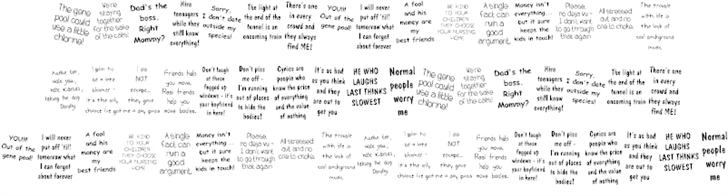 The gene pool could use a little chlorine!
We're staying together for the sake of the cats!
Dad's the boss. Right Mommy?
Hire teenagers while they still know everything!
Sorry, I don't date outside my species!
The light at the end of the tunnel is an oncoming train
There's one in every crowd and they always find ME!
YOU!!! Out of the gene pool!
I will never put off 'til tomorrow what I can forget about forever
A fool and his money are my best friends
BE KIND TO YOUR CHILDREN THEY CHOOSE YOUR NURSING HOME
A single fact can ruin a good argument.
Money isn't everything.. but it sure keeps the kids in touch!
Please, no deja vu - I don't want to go through that again
All stressed out and no one to choke.
The trouble with life is the lack of background music
Don't laugh at those fogged up windows - it's your boyfriend in here!
Don't piss me off - I'm running out of places to hide the bodies!
Cynics are people who know the price of everything and the value of nothing
It's as bad as you think and they are out to get you
HE WHO LAUGHS LAST THINKS SLOWEST
Normal people worry me
The gene pool could use a little chlorine!
We're staying together for the sake of the cats!
Dad's the boss. Right Mommy?
Hire teenagers while they still know everything!
Sorry, I don't date outside my species!
The light at the end of the tunnel is an oncoming train
There's one in every crowd and they always find ME!
YOU!!! Out of the gene pool!
I will never put off 'til tomorrow what I can forget about forever
A fool and his money are my best friends
BE KIND TO YOUR CHILDREN THEY CHOOSE YOUR NURSING HOME
A single fact can ruin a good argument.
Money isn't everything.. but it sure keeps the kids in touch!
Please, no deja vu - I don't want to go through that again
All stressed out and no one to choke.
The trouble with life is the lack of background music
Friends help you move. Real friends help you move bodies.
Don't laugh at those fogged up windows - it's your boyfriend in here!
Don't piss me off - I'm running out of places to hide the bodies!
Cynics are people who know the price of everything and the value of nothing
It's as bad as you think and they are out to get you
HE WHO LAUGHS LAST THINKS SLOWEST
Normal people worry me